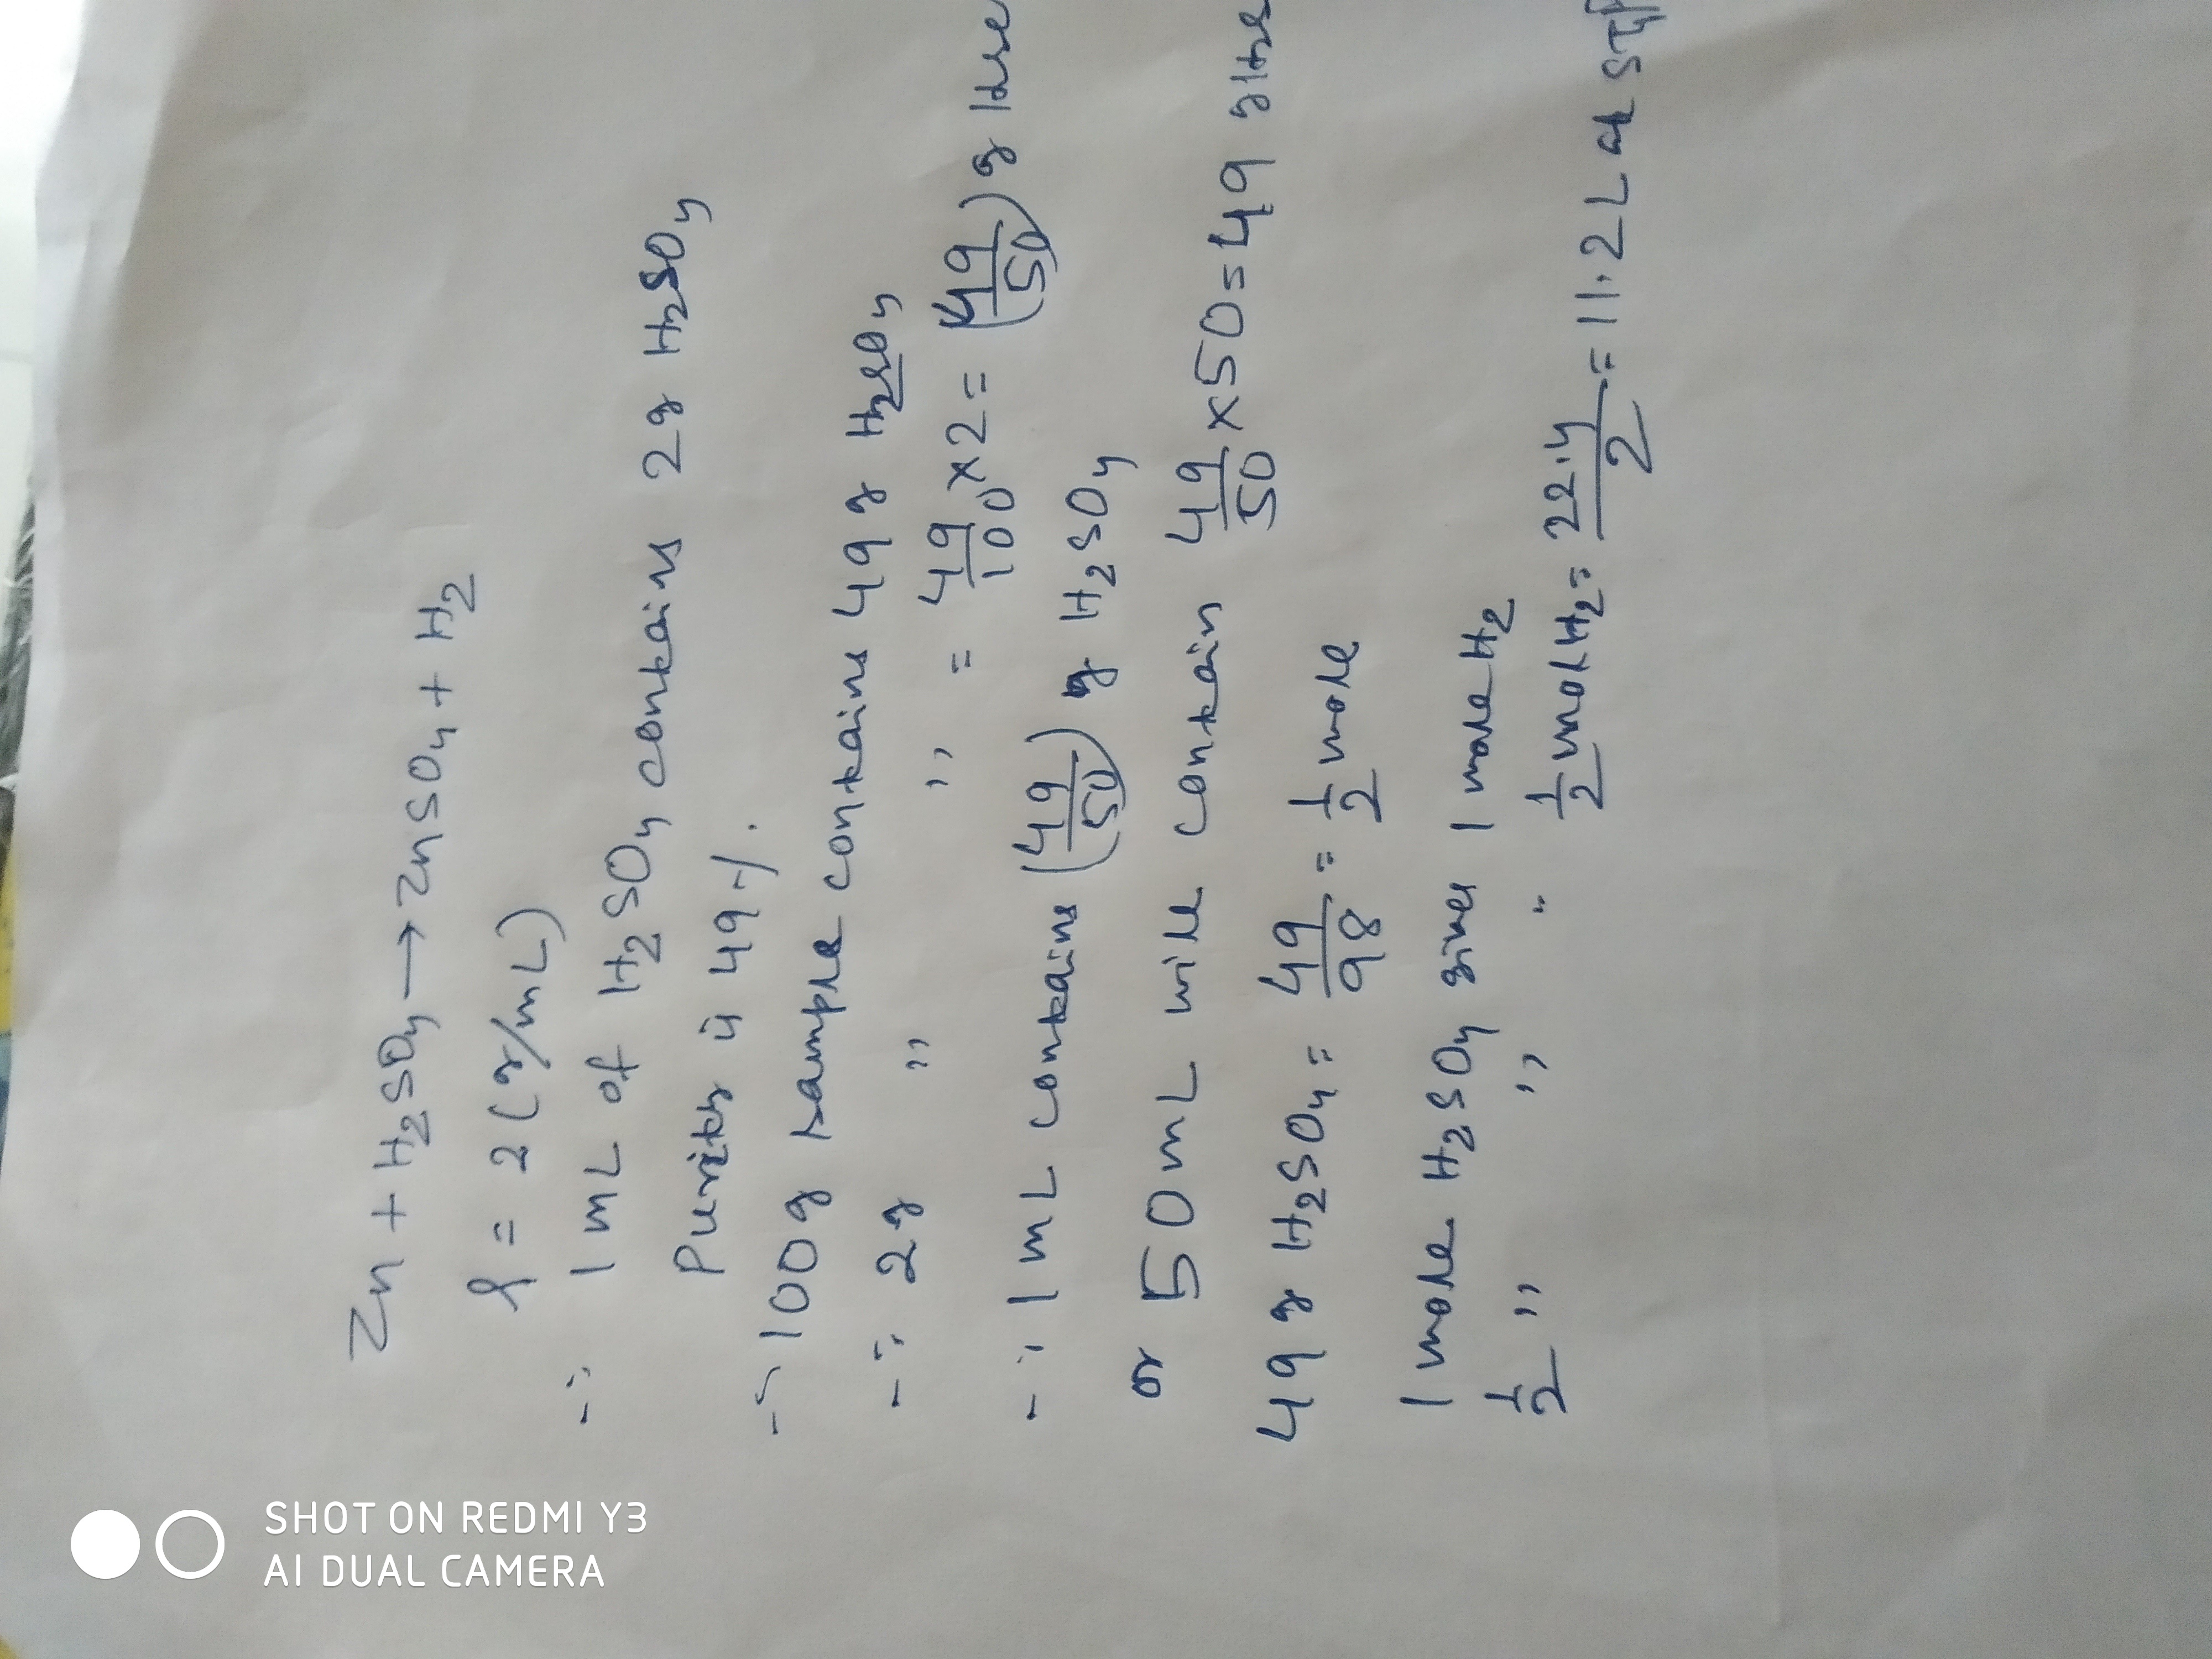 Zn + H2SO4 → ZnSO4 + H2
ρ = 2 (g/mL)
∴ 1 mL of H2SO4 contains 2g H2SO4
Purity is 49 %.
∴ 100 g sample contains 49 g H2SO4
∴ 2g " " = 49/100 × 2 = (49/50) g
∴ 1 mL contains (49/50) g H2SO4
or 50 mL will contain 49/50 × 50 = 49 g
49 g H2SO4 = 49/98 = 1/2 mole
1 mole H2SO4 gives 1 mole H2
1/2 " " " 1/2 mole H2 = 22.4/2 = 11.2 L at STP
SHOT ON REDMI Y3
AI DUAL CAMERA